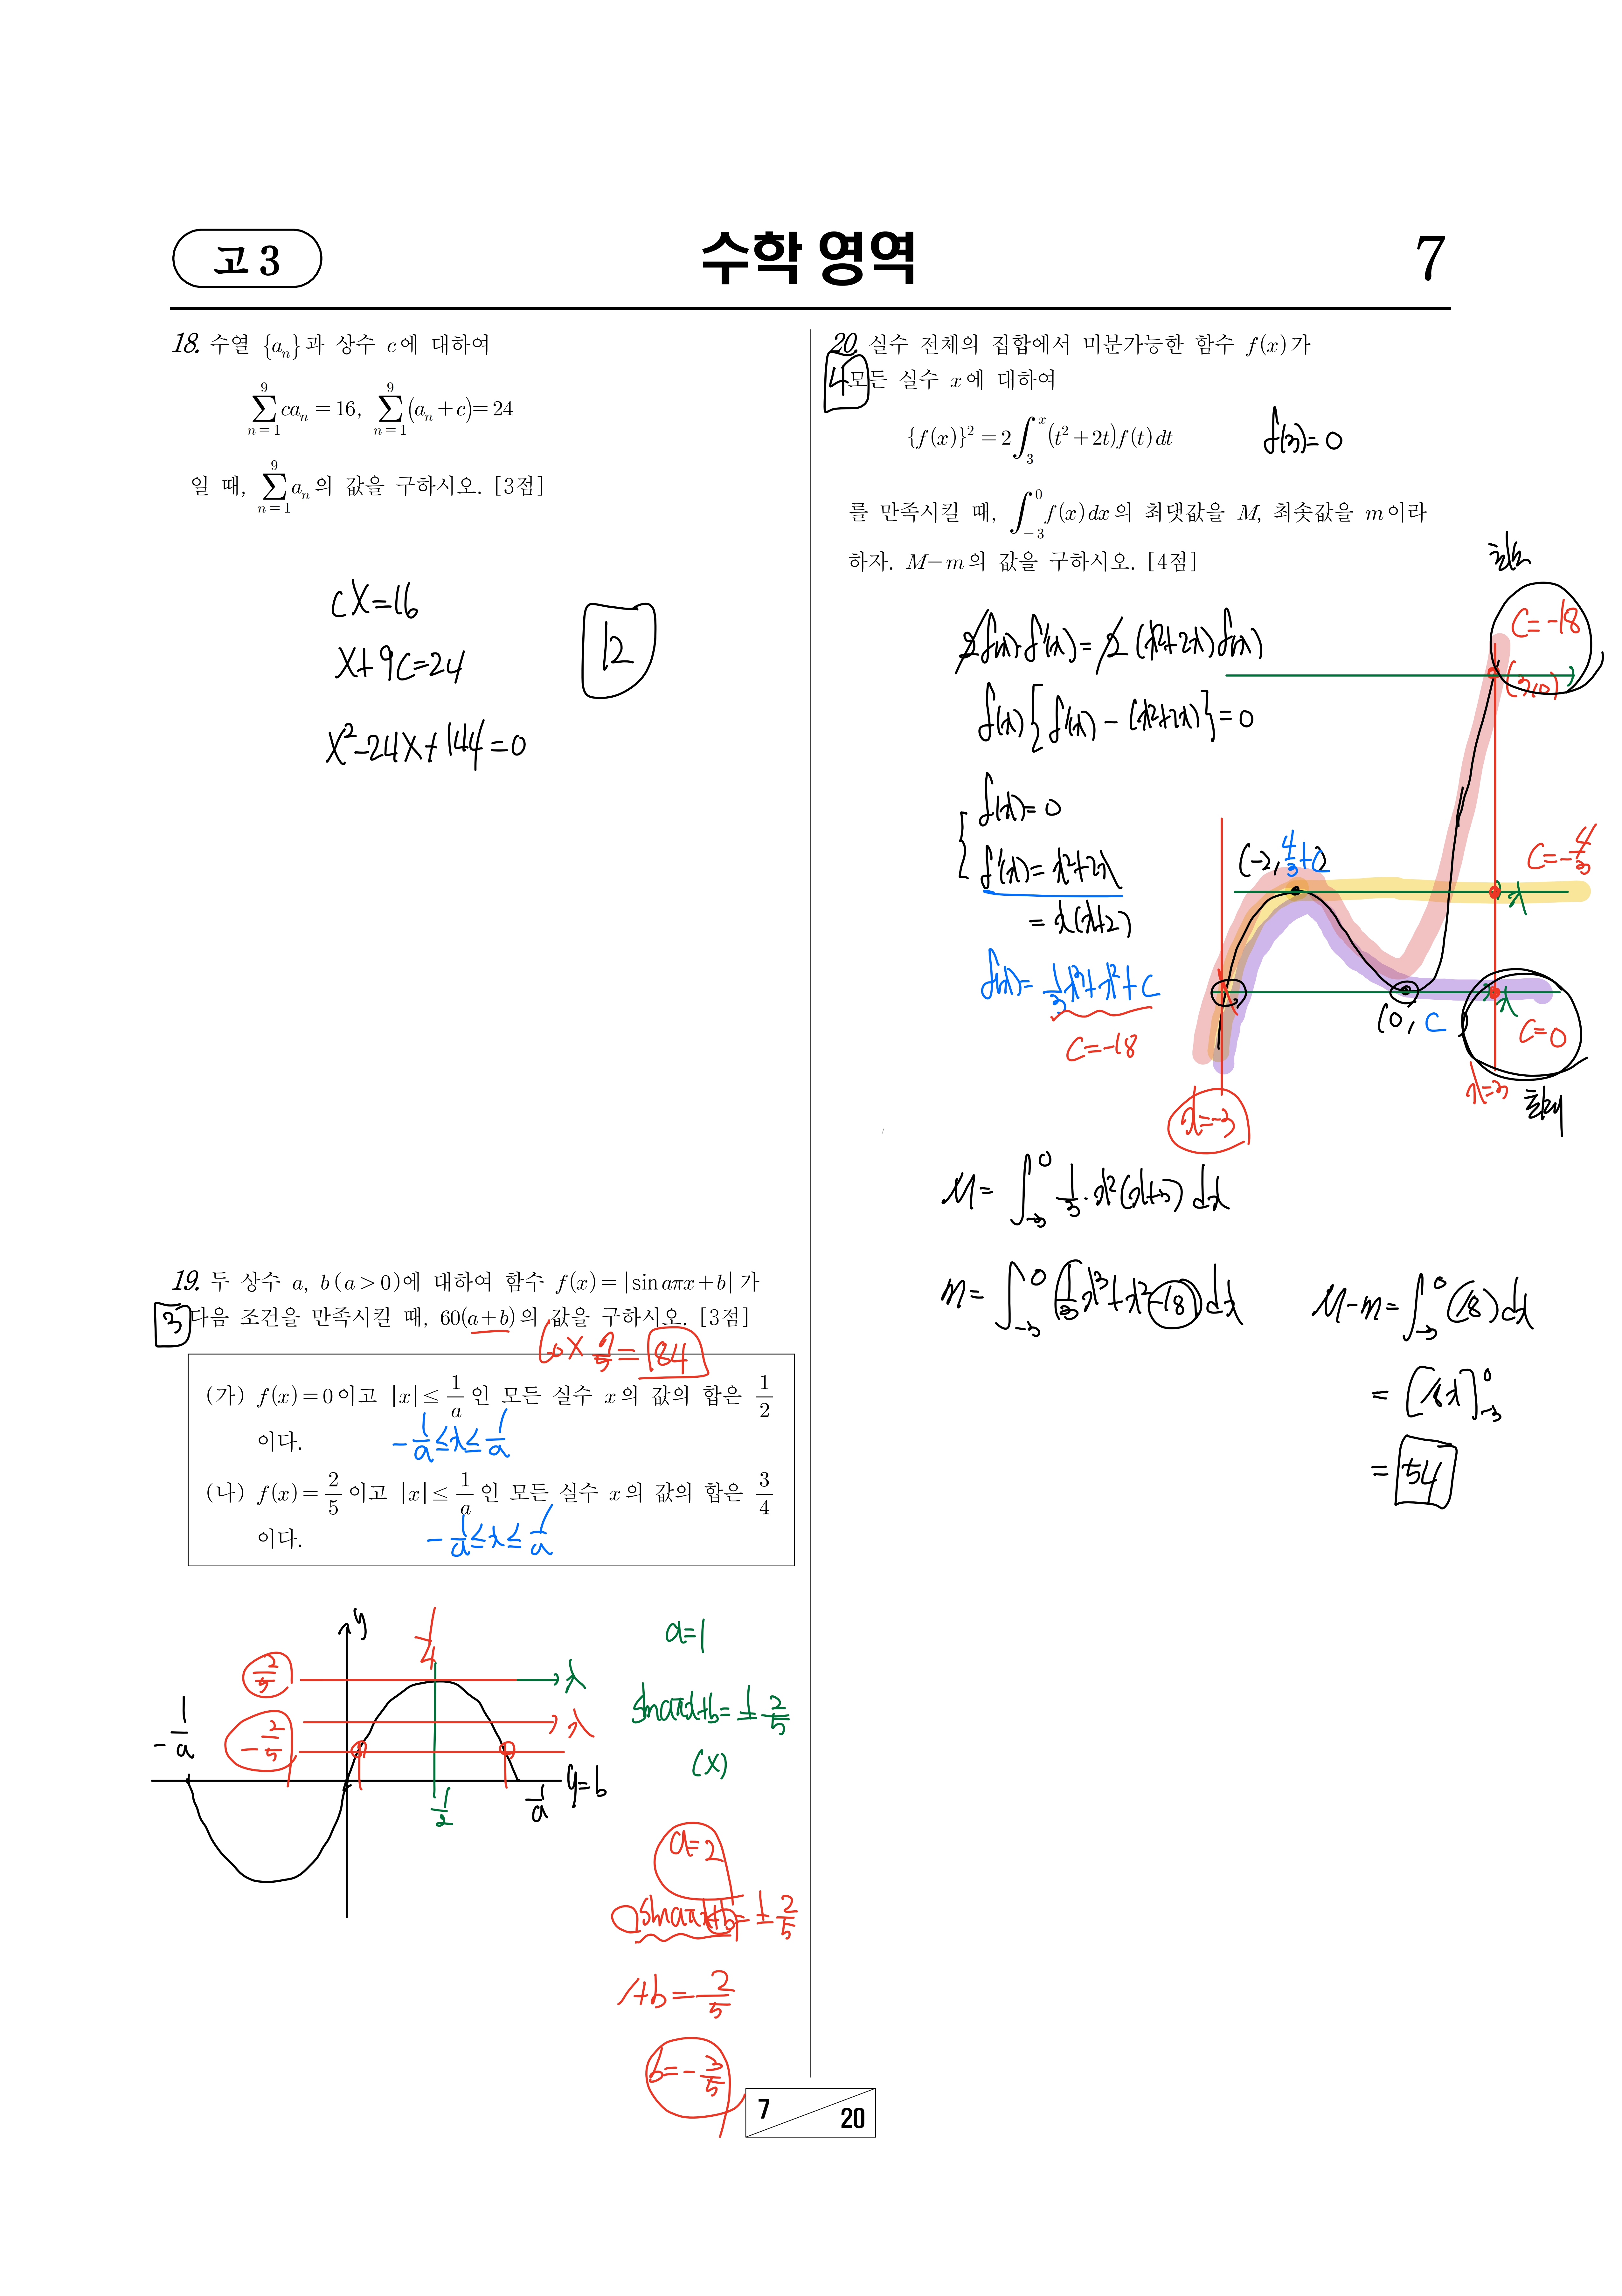 고 3
수학 영역
7
18. 수열 {a_n}과 상수 c에 대하여
\sum_{n=1}^{9} ca_n = 16, \sum_{n=1}^{9} (a_n + c) = 24
일 때, \sum_{n=1}^{9} a_n의 값을 구하시오. [3점]
cX=16
X+9c=24
X²-24X+144=0
12
19. 두 상수 a, b (a > 0)에 대하여 함수 f(x) = |sin aπx + b| 가
3
다음 조건을 만족시킬 때, 60(a+b)의 값을 구하시오. [3점]
60×7/5=84
(가) f(x) = 0 이고 |x| ≤ 1/a 인 모든 실수 x의 값의 합은 1/2
이다.
-1/a≤x≤1/a
(나) f(x) = 2/5 이고 |x| ≤ 1/a 인 모든 실수 x의 값의 합은 3/4
이다.
-1/a≤x≤1/a
y
1/4
2/5
x
-1/a
x
-2/5
y=b
1/a
1/2
a=1
sin aπx+b=±2/5
(X)
a=2
sin aπx+b=±2/5
1+b=2/5
b=-3/5
20. 실수 전체의 집합에서 미분가능한 함수 f(x)가
4
모든 실수 x에 대하여
{f(x)}² = 2∫_3^x (t² + 2t)f(t)dt
f(3)=0
를 만족시킬 때, ∫_{-3}^0 f(x)dx의 최댓값을 M, 최솟값을 m이라
하자. M-m의 값을 구하시오. [4점]
2f(x)·f'(x)=2(x²+2x)f(x)
f(x){f'(x)-(x²+2x)}=0
f(x)=0
f'(x)=x²+2x
=x(x+2)
f(x)=1/3x³+x²+c
c=-18
최소
c=-18
(3,0)
(-2, 4/3+c)
c=-4/3
x
(0, c)
x
c=0
x=3
최대
x=-3
M=∫_{-3}^0 1/3·x²(x+3)dx
m=∫_{-3}^0 (1/3x³+x²-18)dx
M-m=∫_{-3}^0 (18)dx
=[18x]_{-3}^0
=54
7
20